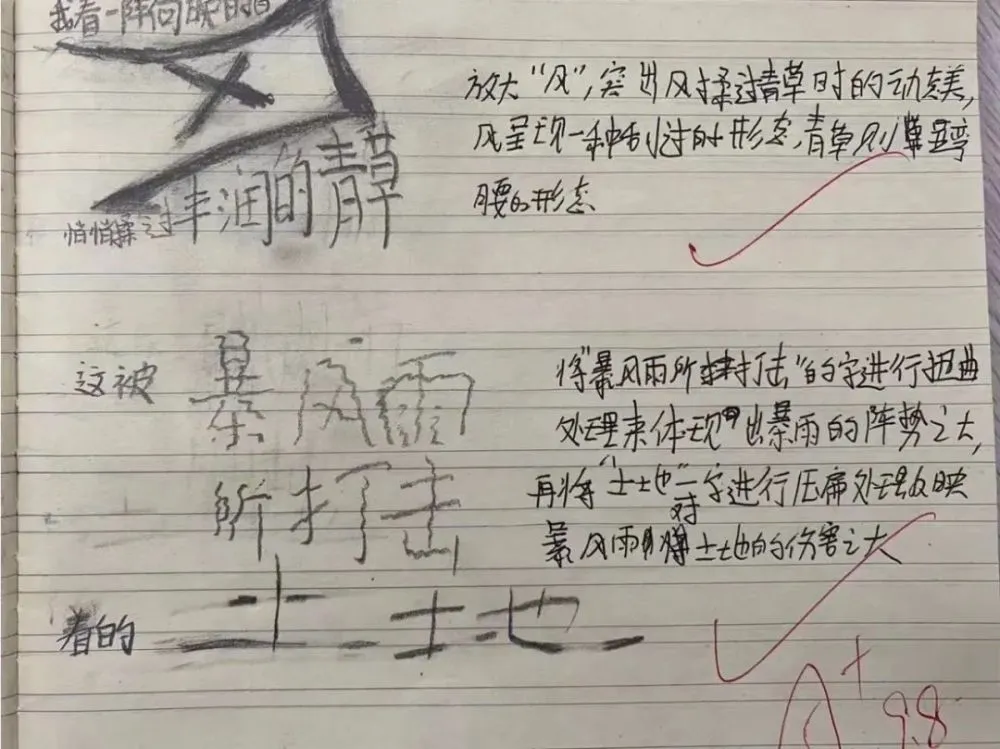 我看一阵向晚的
风
悄悄揉过丰润的青草
放大“风”,突出风揉过青草时的动态美,
风呈现一种刮过的形态,青草则草显弯
腰的形态
这被
暴风雨
所打击
着的
土土地
将“暴风雨所打击”的字进行扭曲
处理来体现出暴雨的阵势之大,
再将“土地”一字进行压扁处理反映
暴风雨对土地的伤害之大
A+ 98